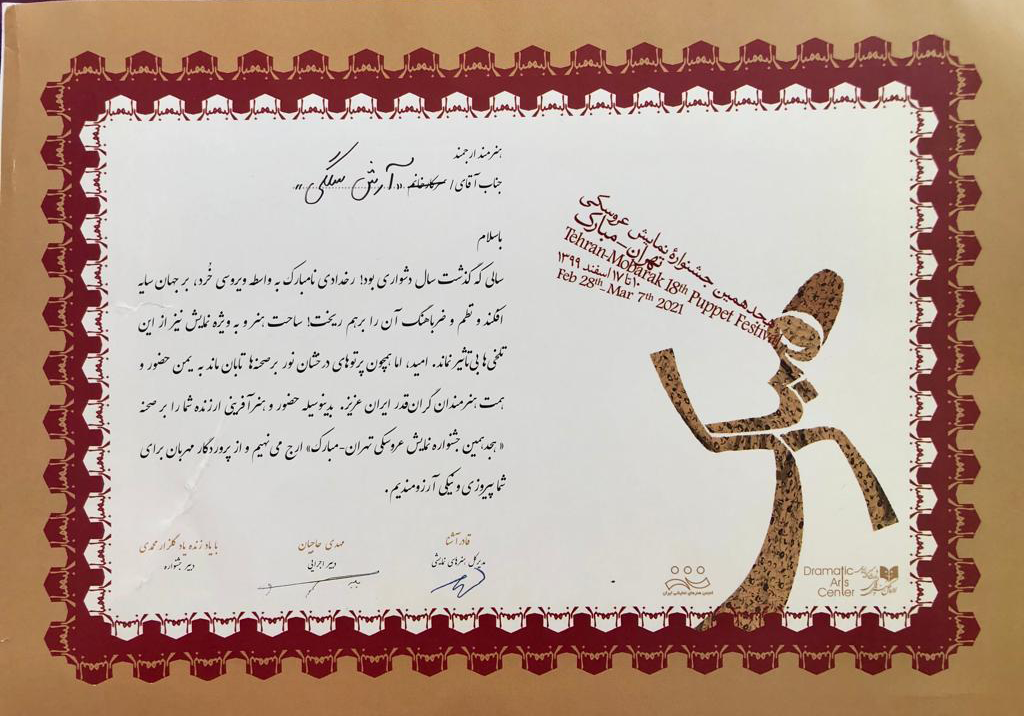 هنرمند ارجمند
جناب آقای / سرکارخانم «آرش سنگی»
باسلام
سالی که گذشت سال دشواری بود! رخدادی نامبارک به واسطه ویروسی خُرد، بر جهان سایه
افکند و نظم و ضرباهنگ آن را برهم ریخت! ساحت هنر و به ویژه نمایش نیز از این
تلخی‌ها بی‌تاثیر نماند. امید، اما همچون پرتوهای درخشان نور بر صحنه‌ها تابان ماند به یمن حضور و
همت هنرمندان گران‌قدر ایران عزیز. بدینوسیله حضور و هنرآفرینی ارزنده شما را بر صحنه
«هجدهمین جشنواره نمایش عروسکی تهران-مبارک» ارج می‌نهیم و از پروردگار مهربان برای
شما پیروزی و نیکی آرزومندیم.
قادر آشنا
مدیرکل هنرهای نمایشی
مهدی حاجیان
دبیر اجرایی
با یاد زنده یاد گلزار محمدی
دبیر جشنواره
هجدهمین جشنوارهٔ نمایش عروسکی
تهران-مبارک
Tehran-Mobarak 18th Puppet Festival
۱۰ تا ۱۷ اسفند ۱۳۹۹
Feb 28th_Mar 7th 2021
انجمن هنرهای نمایشی ایران
Dramatic
Arts
Center